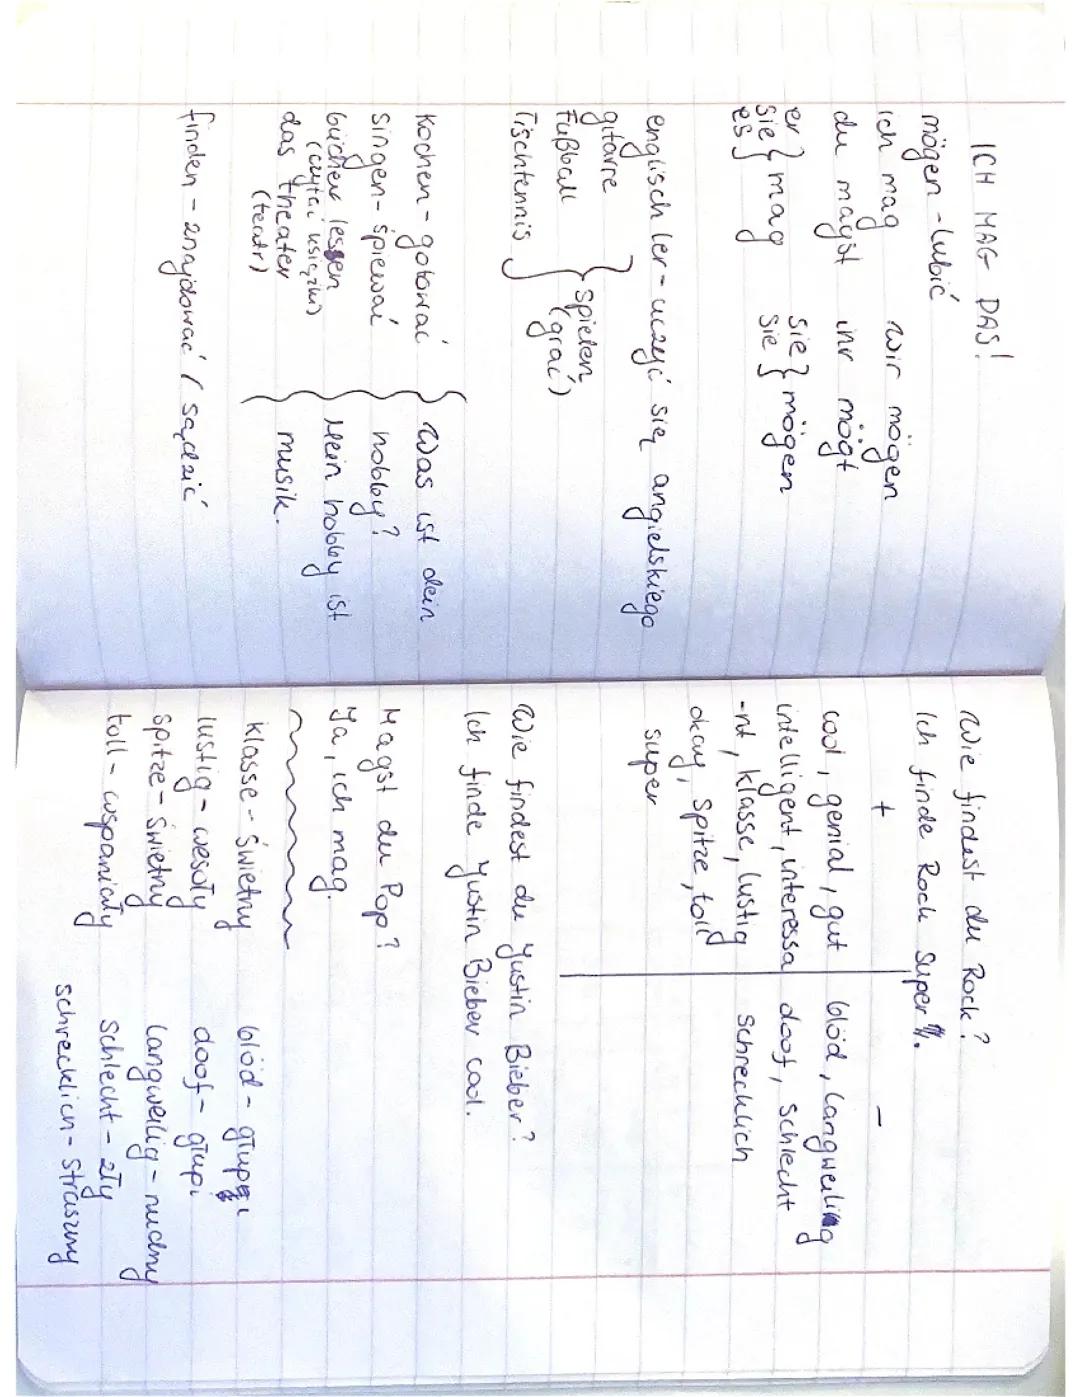 ICH MAG DAS!
mögen - lubić
ich mag wir mögen
du magst ihr mögt
er
sie } mag sie } mögen
es sie
englisch ler - uczyć się angielskiego
gitarre
Fußball } spielen
Tischtennis (grać)
kochen - gotować
singen - śpiewać
bücher lessen
(czytać książki)
das theater
(teatr)
Was ist dein
hobby?
Mein hobby ist
musik.
finden - znajdować / sądzić
Wie findest du Rock?
Ich finde Rock super.
+ -
cool, genial, gut blöd, langweiling
intelligent, interessa doof, schlecht
-nt, klasse, lustig schrecklich
okay, Spitze, toll
super
Wie findest du Yustin Bieber?
Ich finde Yustin Bieber cool.
Magst du Pop?
Ya, ich mag.
klasse - świetny blöd - głupi
lustig - wesoły doof - głupi
spitze - świetny langweilig - nudny
toll - wspaniały schlecht - zły
schrecklich - straszny